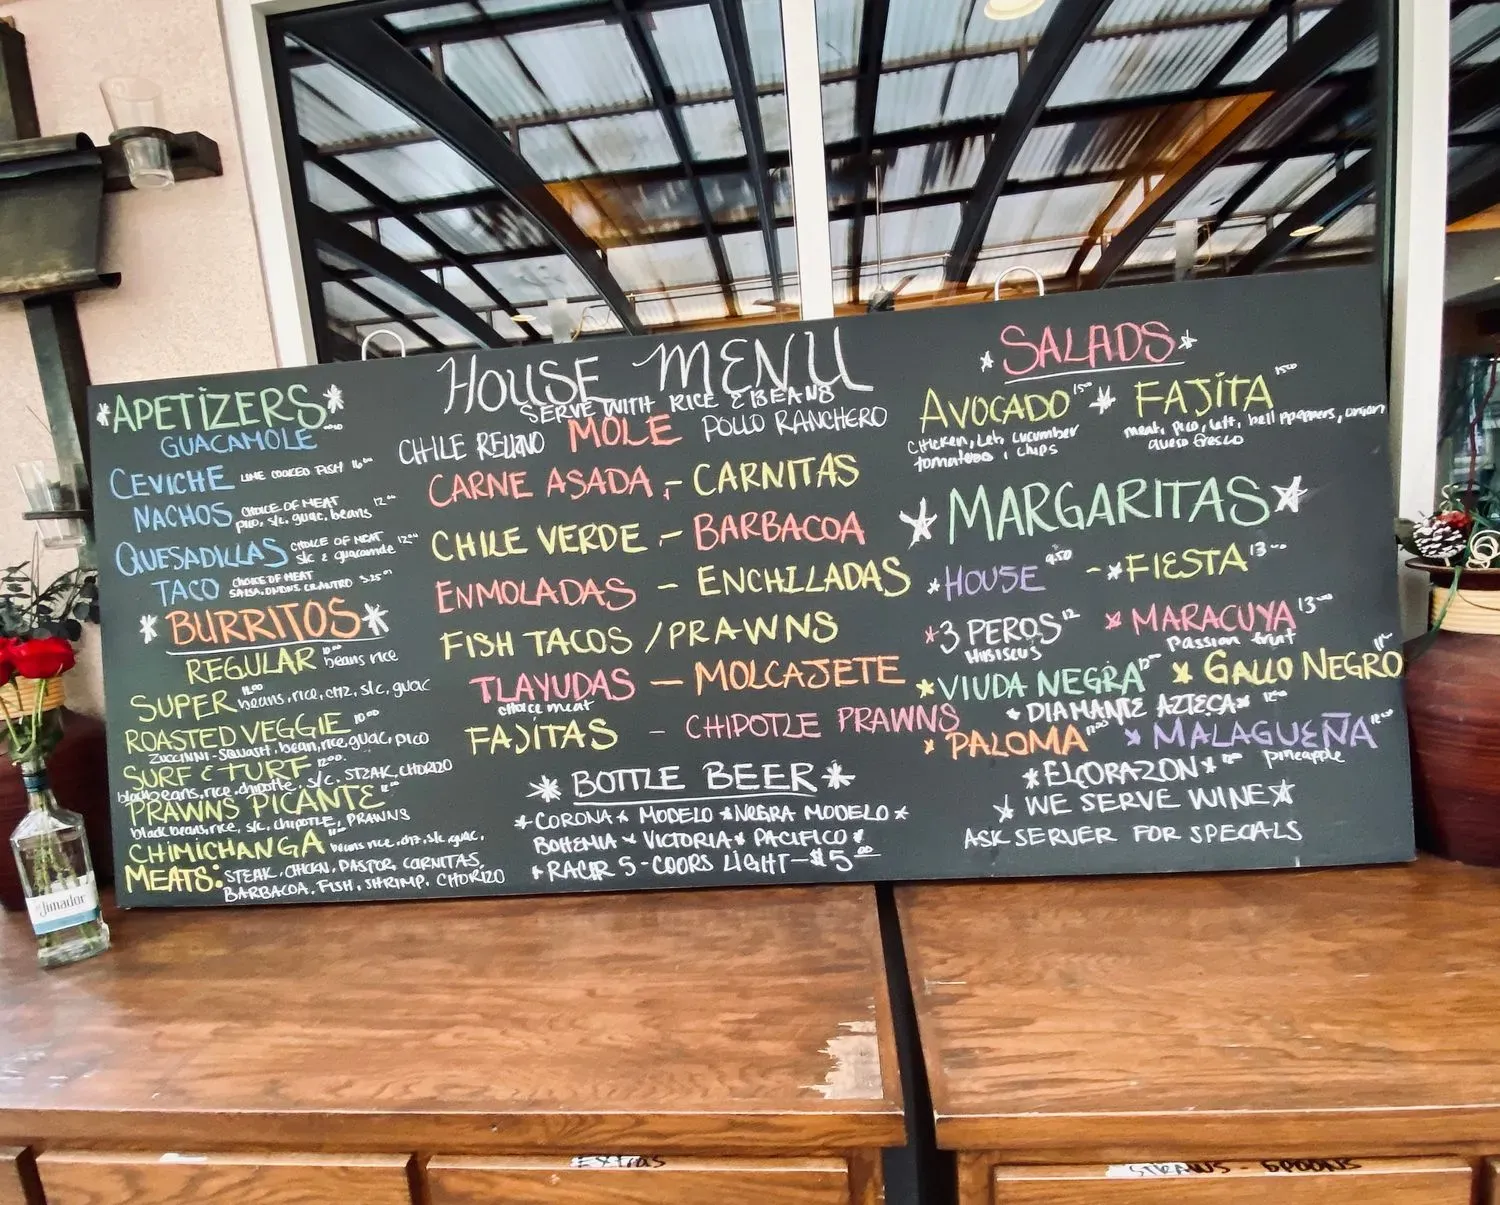 *APETIZERS*
GUACAMOLE
CEVICHE LIME COOKED FISH
NACHOS CHOICE OF MEAT 12.00
pico, s/c, guac, beans
QUESADILLAS CHOICE OF MEAT 12.00
s/c & guacamole
TACO CHOICE OF MEAT
SALSA, ONIONS, CILANTRO 3.25
*BURRITOS*
REGULAR beans rice
SUPER 11.00 beans, rice, chz, s/c, guac
ROASTED VEGGIE 10.00
ZUCCINNI-SQUASH, bean, rice, guac, pico
SURF & TURF 12.00
black beans, rice, chipotle, s/c, STEAK, CHORIZO
PRAWNS PICANTE
black beans, rice, s/c, chipotle, PRAWNS
CHIMICHANGA beans rice, chz, s/c, guac,
MEATS: STEAK, CHICKN, PASTOR, CARNITAS,
BARBACOA, FISH, SHRIMP, CHORIZO
HOUSE MENU
SERVE WITH RICE & BEANS
CHILE RELLENO MOLE POLLO RANCHERO
CARNE ASADA - CARNITAS
CHILE VERDE - BARBACOA
ENMOLADAS - ENCHILADAS
FISH TACOS / PRAWNS
TLAYUDAS - MOLCAJETE
choice meat
FAJITAS - CHIPOTLE PRAWNS
*BOTTLE BEER*
*CORONA * MODELO *NEGRA MODELO *
BOHEMIA * VICTORIA * PACIFICO *
5-COORS LIGHT-$5.00
*SALADS*
AVOCADO * FAJITA
chicken, let, cucumber
tomatoes, chips
meat, pico, lett, bell ppeppers, onion
queso fresco
*MARGARITAS*
*HOUSE 9.50 - *FIESTA 13
*3 PEROS 12 * MARACUYA 13
HIBISCUS
Passion fruit
*VIUDA NEGRA * GALLO NEGRO
* DIAMANTE AZTECA*
* PALOMA * MALAGUEÑA
pineapple
*ELCORAZON*
* WE SERVE WINE*
ASK SERVER FOR SPECIALS
el Jimador
Extras
STRAWS - SPOONS